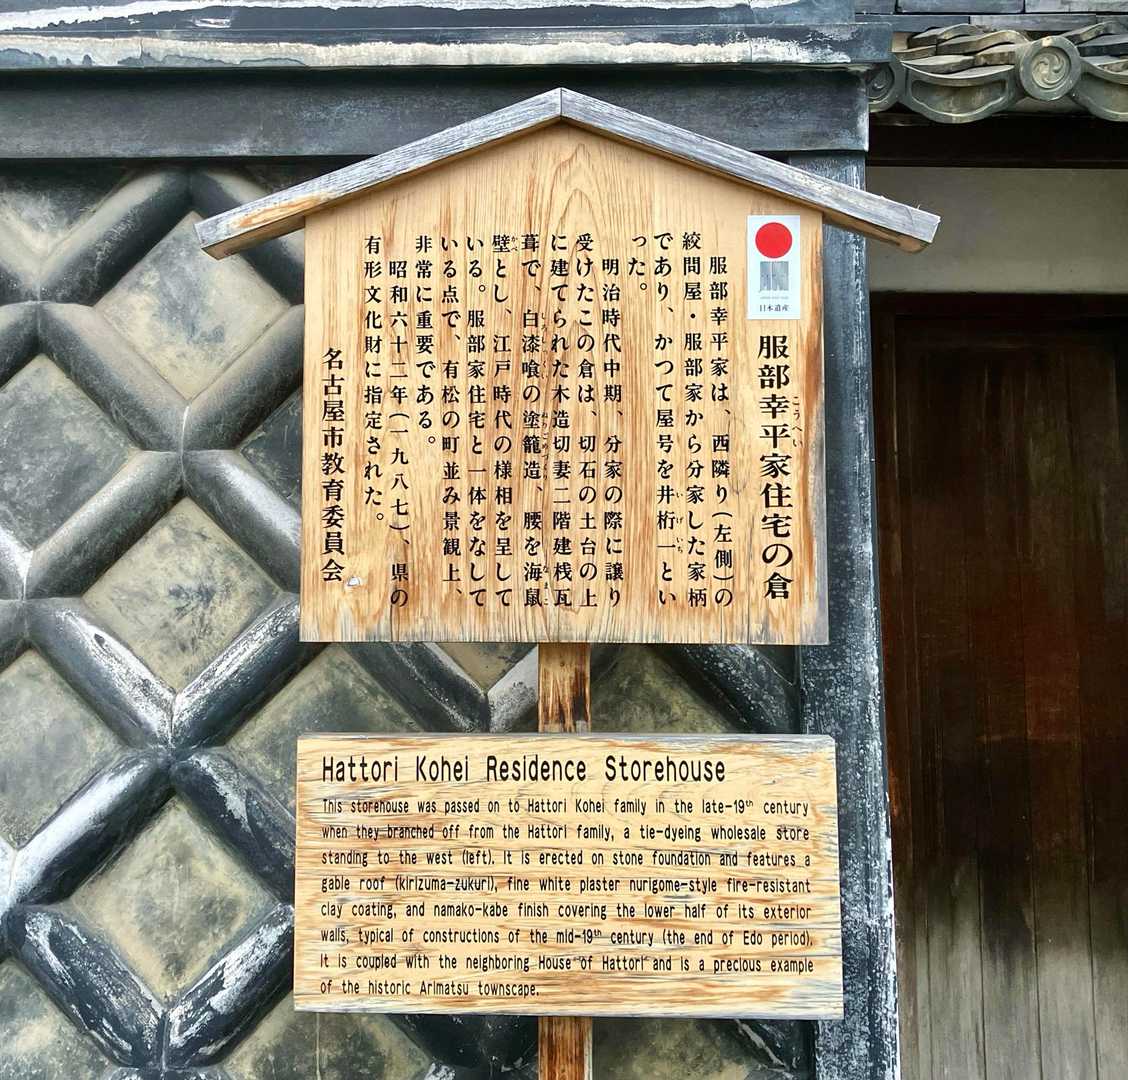 服部幸平家住宅の倉
こうへい
服部幸平家は、西隣り(左側)の
絞問屋・服部家から分家した家柄
であり、かつて屋号を井桁一とい
いげいち
った。
明治時代中期、分家の際に譲り
受けたこの倉は、切石の土台の上
に建てられた木造切妻二階建桟瓦
葺で、白漆喰の塗籠造、腰を海鼠
しろしっくい ぬりごめづくり なまこ
壁とし、江戸時代の様相を呈して
かべ
いる。服部家住宅と一体をなして
いる点で、有松の町並み景観上、
非常に重要である。
昭和六十二年(一九八七)、県の
有形文化財に指定された。
名古屋市教育委員会
日本遺産
Hattori Kohei Residence Storehouse
This storehouse was passed on to Hattori Kohei family in the late-19th century
when they branched off from the Hattori family, a tie-dyeing wholesale store
standing to the west (left). It is erected on stone foundation and features a
gable roof (kirizuma-zukuri), fine white plaster nurigome-style fire-resistant
clay coating, and namako-kabe finish covering the lower half of its exterior
walls, typical of constructions of the mid-19th century (the end of Edo period).
It is coupled with the neighboring House of Hattori and is a precious example
of the historic Arimatsu townscape.